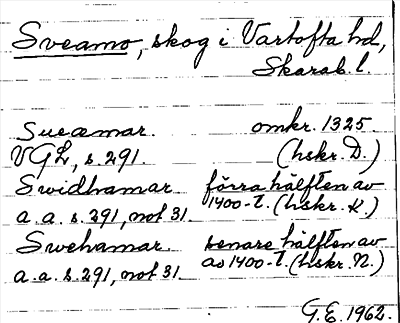 Sveamo, skog i Vartofta hd,
Skarab. l.
Sueæmar. omkr. 1325.
VGL, s. 291. (hskr. D.)
Swidhamar förra hälften av
a.a. s. 291, not 31 1400-t. (hskr. K.)
Swehamar. senare hälften av
a.a. s. 291, not 31 1400-t. (hskr. N.)
G.E. 1962.